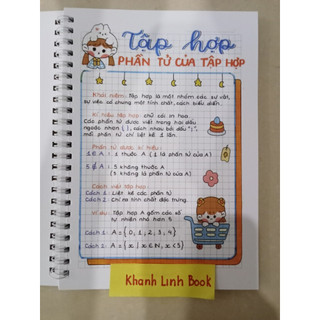 Tập hợp
PHẦN TỬ CỦA TẬP HỢP
Khái niệm: Tập hợp là một nhóm các sự vật,
sự việc có chung một tính chất, cách biểu diễn.
Kí hiệu tập hợp: chữ cái in hoa.
Các phần tử được viết trong hai dấu
ngoặc nhọn { }, cách nhau bởi dấu ";",
mỗi phần tử chỉ liệt kê 1 lần.
Phần tử được kí hiệu:
1 ∈ A : 1 thuộc A (1 là phần tử của A)
5 ∉ A : 5 không thuộc A
(5 không là phần tử của A)
Cách viết tập hợp:
Cách 1: Liệt kê các phần tử
Cách 2: Chỉ ra tính chất đặc trưng.
Ví dụ: Tập hợp A gồm các số
tự nhiên nhỏ hơn 5
Cách 1: A = {0, 1, 2, 3, 4}
Cách 2: A = {x | x ∈ N, x < 5}
Khanh Linh Book